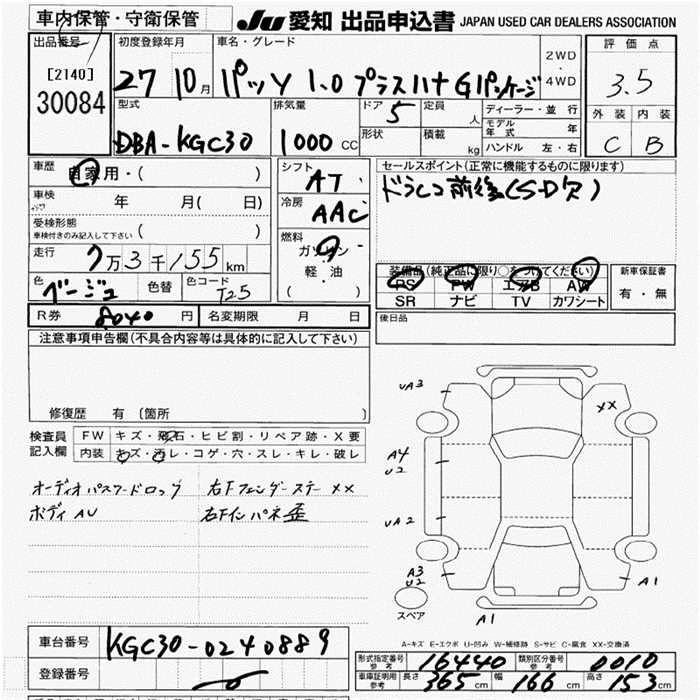 車内保管・守衛保管
JU 愛知 出品申込書 JAPAN USED CAR DEALERS ASSOCIATION
出品番号
[2140]
30084
初度登録年月
27 10月
車名・グレード
パッソ 1.0 プラスハナ Gパッケージ
2WD
4WD
評価点
3.5
型式
DBA-KGC30
排気量
1000 CC
ドア 5
定員 人
形状
積載 kg
ディーラー・並行
モデル年式 年
ハンドル 左・右
外装 内装
C B
車歴 自家用・( )
車検 年 月( 日)
受検形態
車検付きのみ記入して下さい ( )
走行 7万3千155km
色 ベージュ
色替
色コード T25
シフト AT
冷房 AAC
燃料
ガソリン
軽・油
( )
セールスポイント(正常に機能するものに限ります)
ドラレコ前後(SD欠)
装備品(純正品に限り○をつけてください)
PS PW エアB AW
SR ナビ TV カワシート
新車保証書
有・無
R券 8040 円 名変期限 月 日
後日品
注意事項申告欄(不具合内容等は具体的に記入して下さい)
修復歴 有 〔箇所 〕
検査員記入欄
FW キズ・飛石・ヒビ割・リペア跡・X要
内装 キズ・汚レ・コゲ・穴・スレ・キレ・破レ
オーディオパスワードロック
ボディ AU
右Fフェンダーステー XX
右Fインパネ歪
UA3
XX
A4
U2
UA2
A3
U2
A1
スペア
A1
A-キズ E-エクボ U-凹み W-補修跡 S-サビ C-腐食 XX-交換済
車台番号 KGC30-0240889
登録番号
形式指定番号 参考 16440
類別区分番号 参考 0010
車庫証明用 参考 長さ 365 cm 幅 166 cm 高さ 153 cm